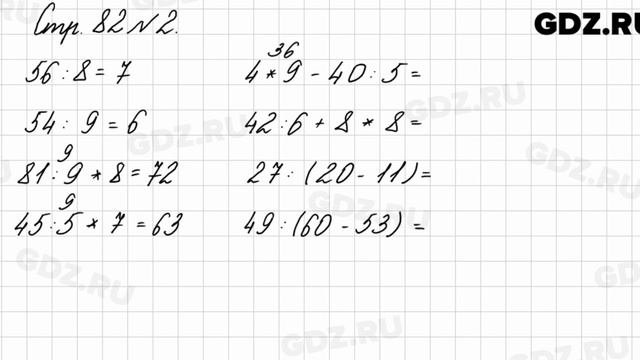 Стр. 82 №2.
GDZ.RU
56 : 8 = 7
54 : 9 = 6
9
81 : 9 * 8 = 72
9
45 : 5 * 7 = 63
36
4 * 9 - 40 : 5 =
42 : 6 + 8 * 8 =
27 : (20 - 11) =
49 : (60 - 53) =
GDZ.RU
GDZ.RU
GDZ.RU
GDZ.RU
GDZ.RU
GDZ.RU
GDZ.RU